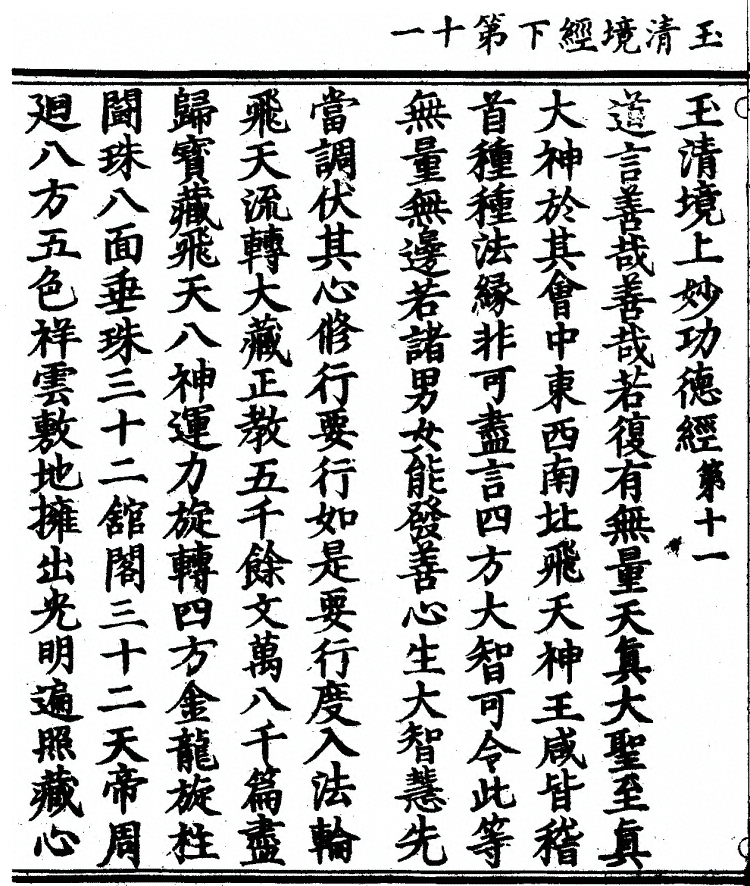 玉清境經下第十一
玉清境上妙功德經第十一
道言善哉善哉若復有無量天真大聖至真
大神於其會中東西南北飛天神王咸皆稽
首種種法緣非可盡言四方大智可令此等
無量無邊若諸男女能發善心生大智慧先
當調伏其心修行要行如是要行度入法輪
飛天流轉大藏正教五千餘文萬八千篇盡
歸寶藏飛天八神運力旋轉四方金龍旋柱
閫珠八面垂珠三十二舘閣三十二天帝周
廻八方五色祥雲敷地擁出光明遍照藏心